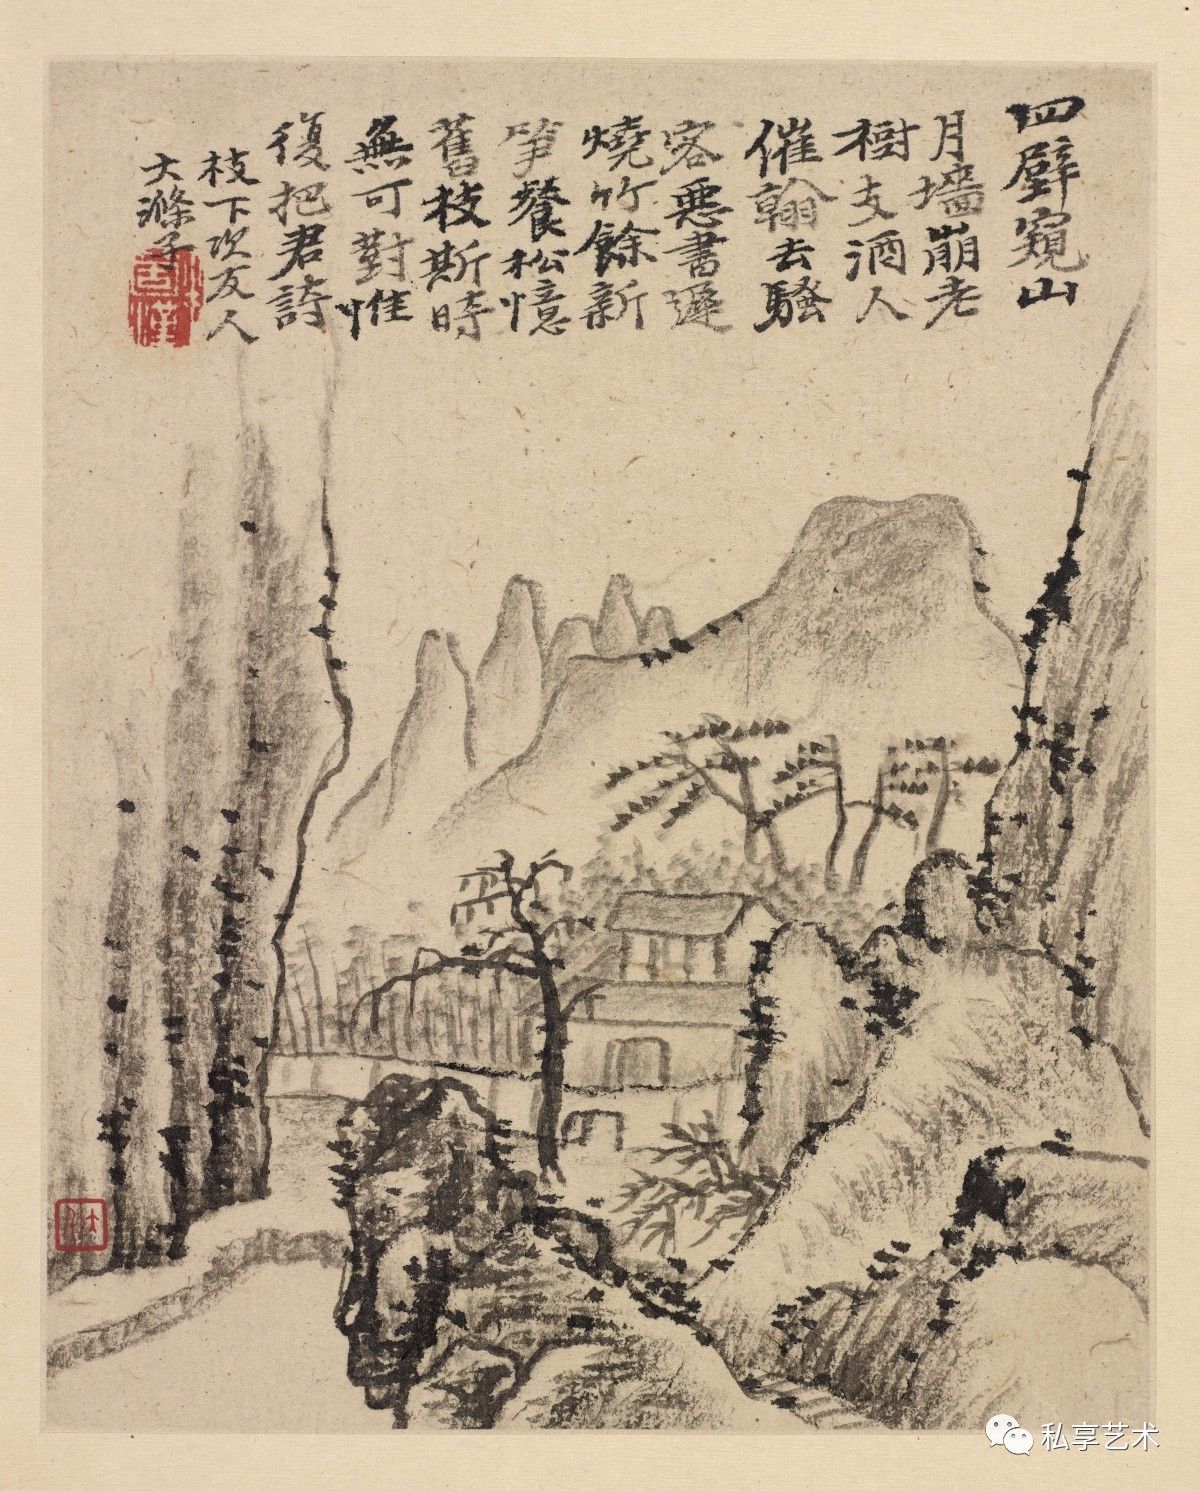 四壁窺山
月墻崩老
樹支酒人
催翰去騷
客惡書遲
燒竹餘新
笋餐松憶
舊枝斯時
無可對惟
復把君詩
枝下次友人
大滌子
私享艺术